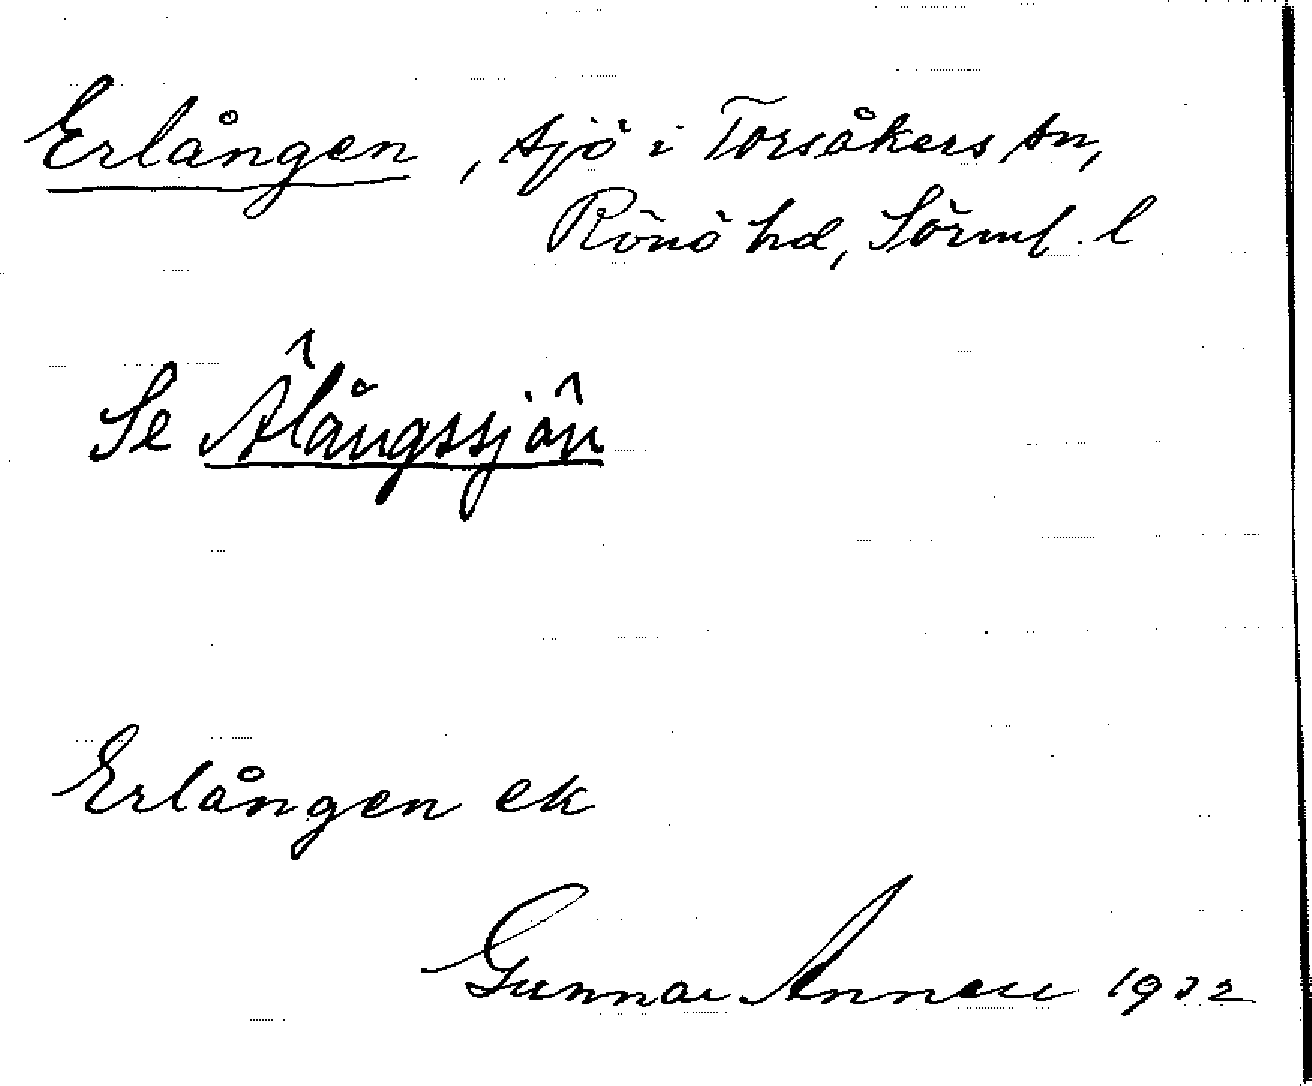 Erlången, sjö i Torsåkers sn,
Rönö hd, Sörml. l
Se Älångssjön
Erlången ek
Gunnar Annell 1932